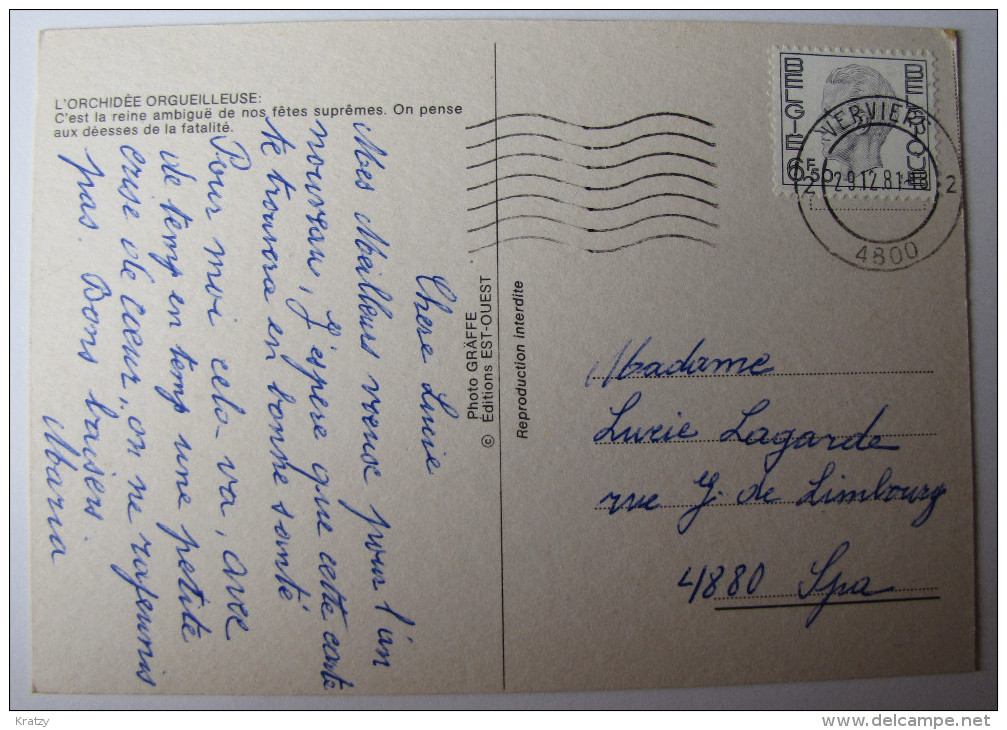 L'ORCHIDÉE ORGUEILLEUSE:
C'est la reine ambiguë de nos fêtes suprêmes. On pense
aux déesses de la fatalité.
Chere Lucie
Mes Meilleurs vœux pour l'an
nouveau, J'espere que cette carte
te trouvera en bonne santé
Pour moi cela va, avec
de temp en temp une petite
crise de cœur, on ne rajeunis
pas. Bons baisers
Maria
Photo GRÄFFE
© Editions EST-OUEST
Reproduction interdite
BELGIE
BELGIQUE
6F50
VERVIERS
29.12.81
2
4800
Madame
Lucie Lagarde
rue J. de Limbourg
4880 Spa
Kratzy
www.delcampe.net